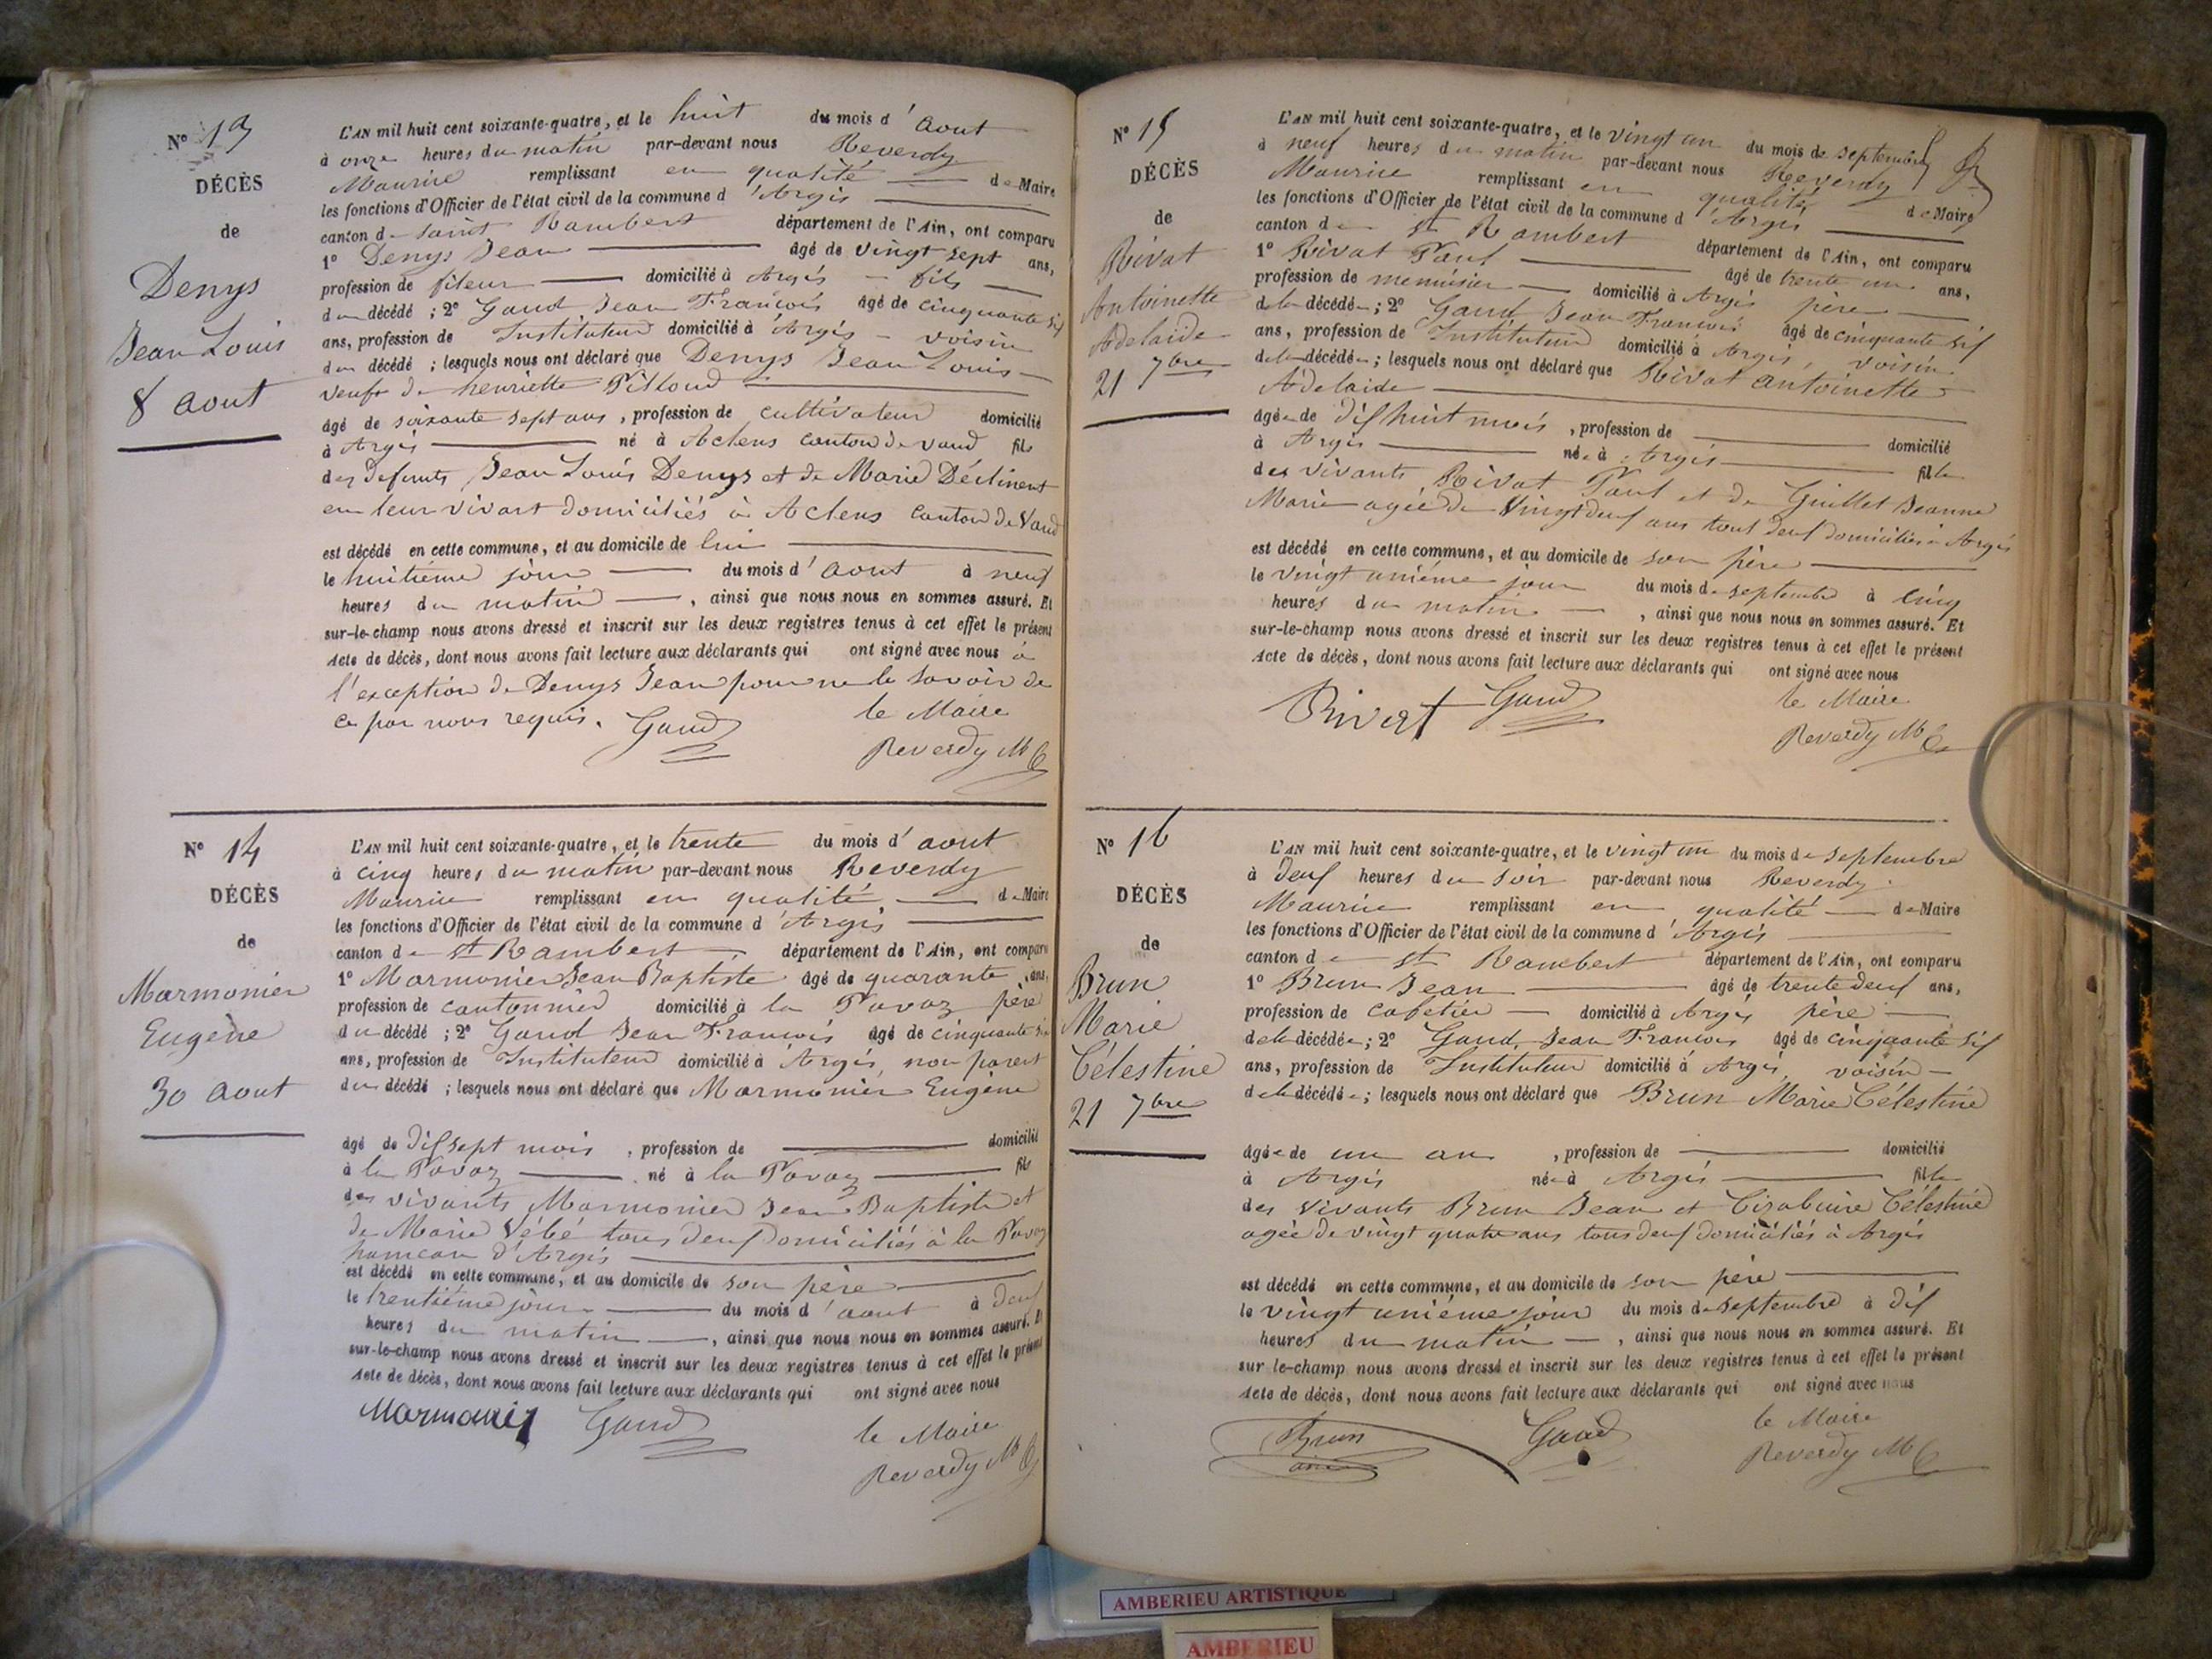 N° 13
DÉCÈS
de
Denys
Jean Louis
8 aout
L'AN mil huit cent soixante-quatre, et le huit du mois d'aout
à onze heures du matin par-devant nous Reverdy
Maurice remplissant en qualité de Maire
les fonctions d'Officier de l'état civil de la commune d'Argis
canton de saint Rambert département de l'Ain, ont comparu
1° Denys Jean âgé de vingt sept ans,
profession de fileur domicilié à Argis fils
du décédé ; 2° Gaud Jean François âgé de cinquante six
ans, profession de Instituteur domicilié à Argis voisin
du décédé ; lesquels nous ont déclaré que Denys Jean Louis
veuf de henriette
âgé de soixante sept ans, profession de cultivateur domicilié
à Argis né à Aclens canton de vaud fils
des defunts Jean Louis Denys et de Marie
en leur vivant domiciliés à Aclens canton de Vaud
est décédé en cette commune, et au domicile de lui
le huitième jour du mois d'aout à neuf
heures du matin, ainsi que nous nous en sommes assuré. Et
sur-le-champ nous avons dressé et inscrit sur les deux registres tenus à cet effet le présent
Acte de décès, dont nous avons fait lecture aux déclarants qui ont signé avec nous à
l'exception de Denys Jean pour ne le savoir de
ce par nous requis. Gaud le Maire
Reverdy M
N° 14
DÉCÈS
de
Marmonier
Eugène
30 aout
L'AN mil huit cent soixante-quatre, et le trente du mois d'aout
à cinq heures du matin par-devant nous Reverdy
Maurice remplissant en qualité de Maire
les fonctions d'Officier de l'état civil de la commune d'Argis
canton de st Rambert département de l'Ain, ont comparu
1° Marmonier Jean Baptiste âgé de quarante ans,
profession de cantonnier domicilié à la Pavaz père
du décédé ; 2° Gaud Jean François âgé de cinquante six
ans, profession de Instituteur domicilié à Argis non parent
du décédé ; lesquels nous ont déclaré que Marmonier Eugène
âgé de dix sept mois, profession de domicilié
à la Pavaz né à la Pavaz fils
des vivants Marmonier Jean Baptiste et
de Marie Vébé tous deux domiciliés à la Pavaz
hameau d'Argis
est décédé en cette commune, et au domicile de son père
le trentième jour du mois d'aout à deux
heures du matin, ainsi que nous nous en sommes assuré. Et
sur-le-champ nous avons dressé et inscrit sur les deux registres tenus à cet effet le présent
Acte de décès, dont nous avons fait lecture aux déclarants qui ont signé avec nous
Marmonier Gaud le Maire
Reverdy M
N° 15
DÉCÈS
de
Rivat
Antoinette
Adelaide
21 7bre
L'AN mil huit cent soixante-quatre, et le vingt un du mois de septembre
à neuf heures du matin par-devant nous Reverdy
Maurice remplissant en qualité de Maire
les fonctions d'Officier de l'état civil de la commune d'Argis
canton de st Rambert département de l'Ain, ont comparu
1° Rivat Paul âgé de trente un ans,
profession de menuisier domicilié à Argis père
de la décédée ; 2° Gaud Jean François âgé de cinquante six
ans, profession de Instituteur domicilié à Argis, voisin
de la décédée ; lesquels nous ont déclaré que Rivat antoinette
Adelaide
âgée de dix huit mois, profession de domicilié
à Argis née à Argis fille
des vivants Rivat Paul et de Guillet Jeanne
Marie agée de Vingt deux ans tout deux domiciliés à Argis
est décédé en cette commune, et au domicile de son père
le vingt unième jour du mois de septembre à cinq
heures du matin, ainsi que nous nous en sommes assuré. Et
sur-le-champ nous avons dressé et inscrit sur les deux registres tenus à cet effet le présent
Acte de décès, dont nous avons fait lecture aux déclarants qui ont signé avec nous
Rivat Gaud le Maire
Reverdy M
N° 16
DÉCÈS
de
Brun
Marie
Célestine
21 7bre
L'AN mil huit cent soixante-quatre, et le vingt un du mois de septembre
à deux heures du soir par-devant nous Reverdy
Maurice remplissant en qualité de Maire
les fonctions d'Officier de l'état civil de la commune d'Argis
canton de st Rambert département de l'Ain, ont comparu
1° Brun Jean âgé de trente deux ans,
profession de cafetier domicilié à Argis père
de la décédée ; 2° Gaud Jean François âgé de cinquante six
ans, profession de Instituteur domicilié à Argis voisin
de la décédée ; lesquels nous ont déclaré que Brun Marie Célestine
âgée de un an, profession de domicilié
à Argis née à Argis fille
des vivants Brun Jean et Célestine
agée de vingt quatre ans tous deux domiciliés à Argis
est décédé en cette commune, et au domicile de son père
le vingt unième jour du mois de septembre à dix
heures du matin, ainsi que nous nous en sommes assuré. Et
sur le-champ nous avons dressé et inscrit sur les deux registres tenus à cet effet le présent
Acte de décès, dont nous avons fait lecture aux déclarants qui ont signé avec nous
Brun Gaud le Maire
Reverdy M
AMBERIEU ARTISTIQUE
AMBERIEU